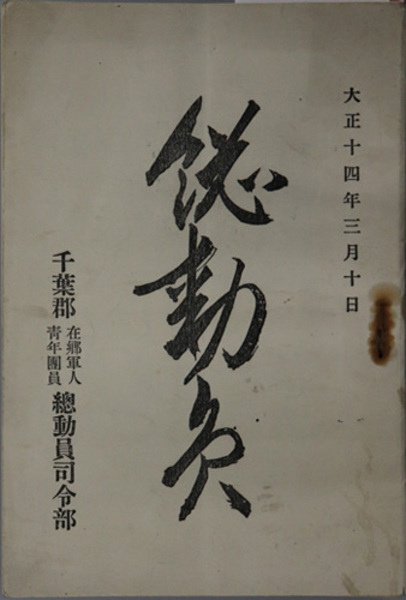 大正十四年三月十日
総動員
千葉郡 在郷軍人 青年團員 總動員司令部